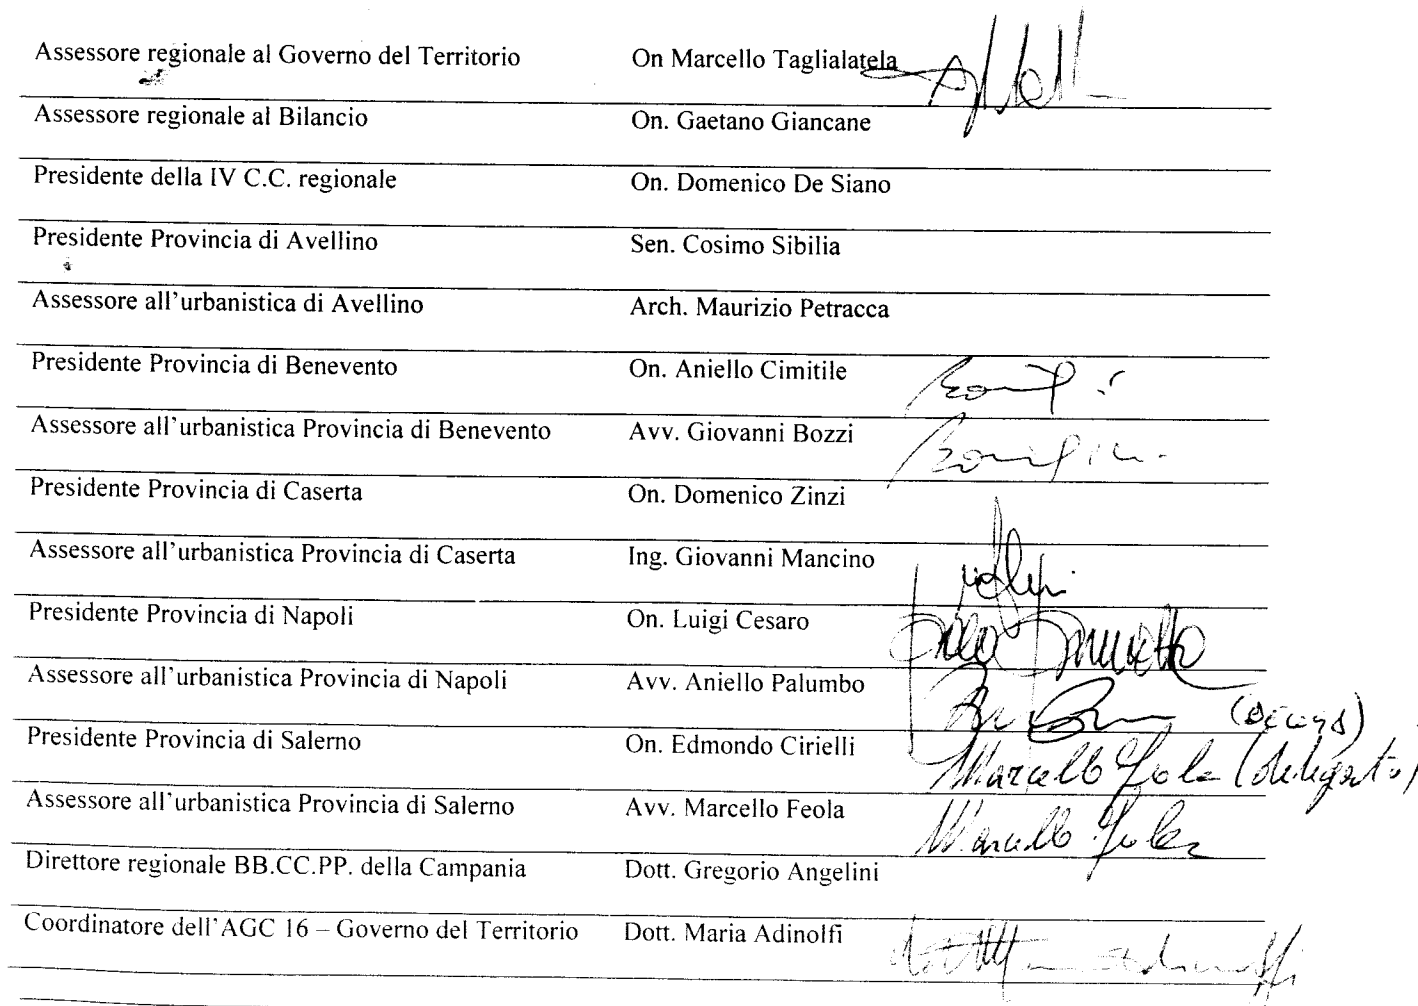 Assessore regionale al Governo del Territorio On Marcello Taglialatela
Assessore regionale al Bilancio On. Gaetano Giancane
Presidente della IV C.C. regionale On. Domenico De Siano
Presidente Provincia di Avellino Sen. Cosimo Sibilia
Assessore all'urbanistica di Avellino Arch. Maurizio Petracca
Presidente Provincia di Benevento On. Aniello Cimitile
Assessore all'urbanistica Provincia di Benevento Avv. Giovanni Bozzi
Presidente Provincia di Caserta On. Domenico Zinzi
Assessore all'urbanistica Provincia di Caserta Ing. Giovanni Mancino
Presidente Provincia di Napoli On. Luigi Cesaro
Assessore all'urbanistica Provincia di Napoli Avv. Aniello Palumbo
Presidente Provincia di Salerno On. Edmondo Cirielli Marcello Feola (delegato)
Assessore all'urbanistica Provincia di Salerno Avv. Marcello Feola Marcello Feola
Direttore regionale BB.CC.PP. della Campania Dott. Gregorio Angelini
Coordinatore dell'AGC 16 – Governo del Territorio Dott. Maria Adinolfi